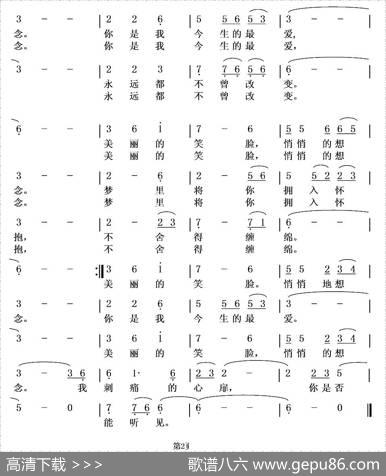 3 - - | 2 2 6 | 5 5 6 5 3 | 3 - -
念。 你 是 我 今 生 的 最 爱,
念。 你 是 我 今 生 的 最 爱,
3 - - | 2 2 3 | 7 7 6 5 6 | 6 - -
永 远 都 不 曾 改 变。
永 远 都 不 曾 改 变。
6 - - | 3 6 i | 7 - 6 | 5 5 6 6 5
美 丽 的 笑 脸, 悄 悄 的 想
美 丽 的 笑 脸, 悄 悄 的 想
3 - - | 2 - 6 | 2 - 5 6 | 5 5 2 2 3
念。 梦 里 将 你 拥 入 怀
念。 梦 里 将 你 拥 入 怀
3 - - | 2 - 2 3 | 7 - 7 1 | 6 - -
抱, 不 舍 得 缠 绵。
抱, 不 舍 得 缠 绵。
6 - - :‖ 3 6 i | 7 - 6 | 5 5 2 3 4
美 丽 的 笑 脸, 悄 悄 地 想
3 - - | 2 2 6 | 5 5 6 5 3 | 3 - -
念。 你 是 我 今 生 的 最 爱。
3 - - | 3 6 i | 7 - 6 | 5 5 2 3 4
美 丽 的 笑 脸, 悄 悄 的 想
3 - 3 6 | 6 1· 6 | 2 3 2 - | 2 2 3 5
念。 我 刺 痛 的 心 扉, 你 是 否
5 - 0 | 7 7 6 6 | 6 - - | 6 - 0 ‖
能 听 见。
高清下载 >>>
歌谱八六 www.gepu86.com